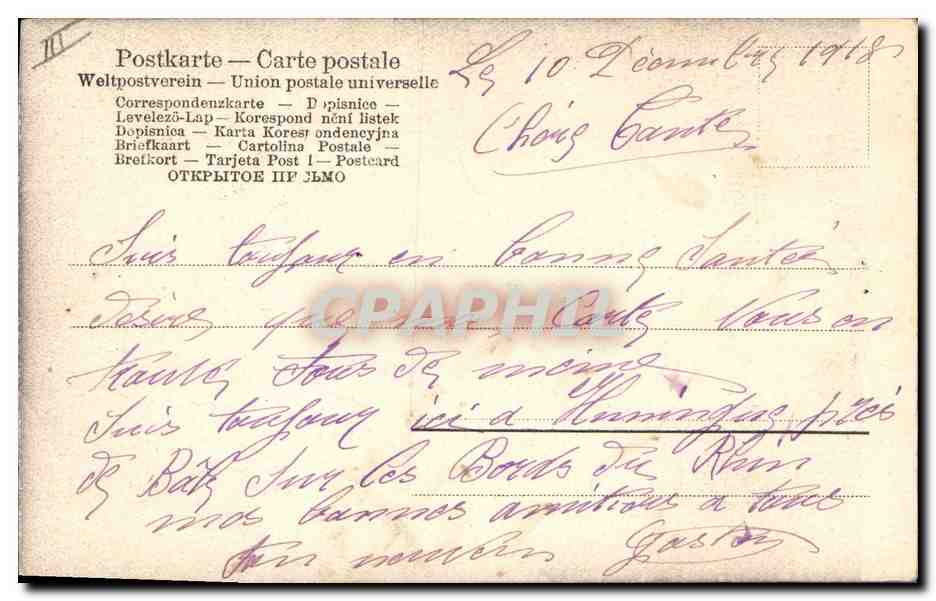 III
Postkarte — Carte postale
Weltpostverein — Union postale universelle
Correspondenzkarte — Dopisnice —
Levelező-Lap — Korespondenční listek
Dopisnica — Karta Korespondencyjna
Briefkaart — Cartolina Postale —
Brefkort — Tarjeta Postal — Postcard
ОТКРЫТОЕ ПИСЬМО
Le 10 Décembre 1918
Chère Tante
Suis toujour en bonne Santé
désire que ma Carte Vous en
trouve tous de meme
Suis toujour ici a Huningue près
de Bâle Sur les Bords du Rhin
mes bonnes amitiés a tous
ton neveu Gaston
CPAPHIL